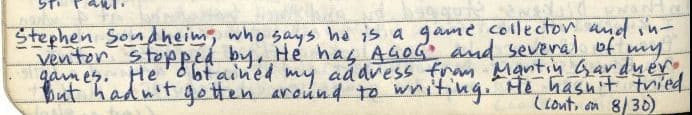 St. Paul.
Stephen Sondheim, who says he is a game collector and in-
ventor stopped by. He has AGOG and several of my
games. He obtained my address from Martin Gardner
but hadn't gotten around to writing. He hasn't tried
(cont. on 8/30)